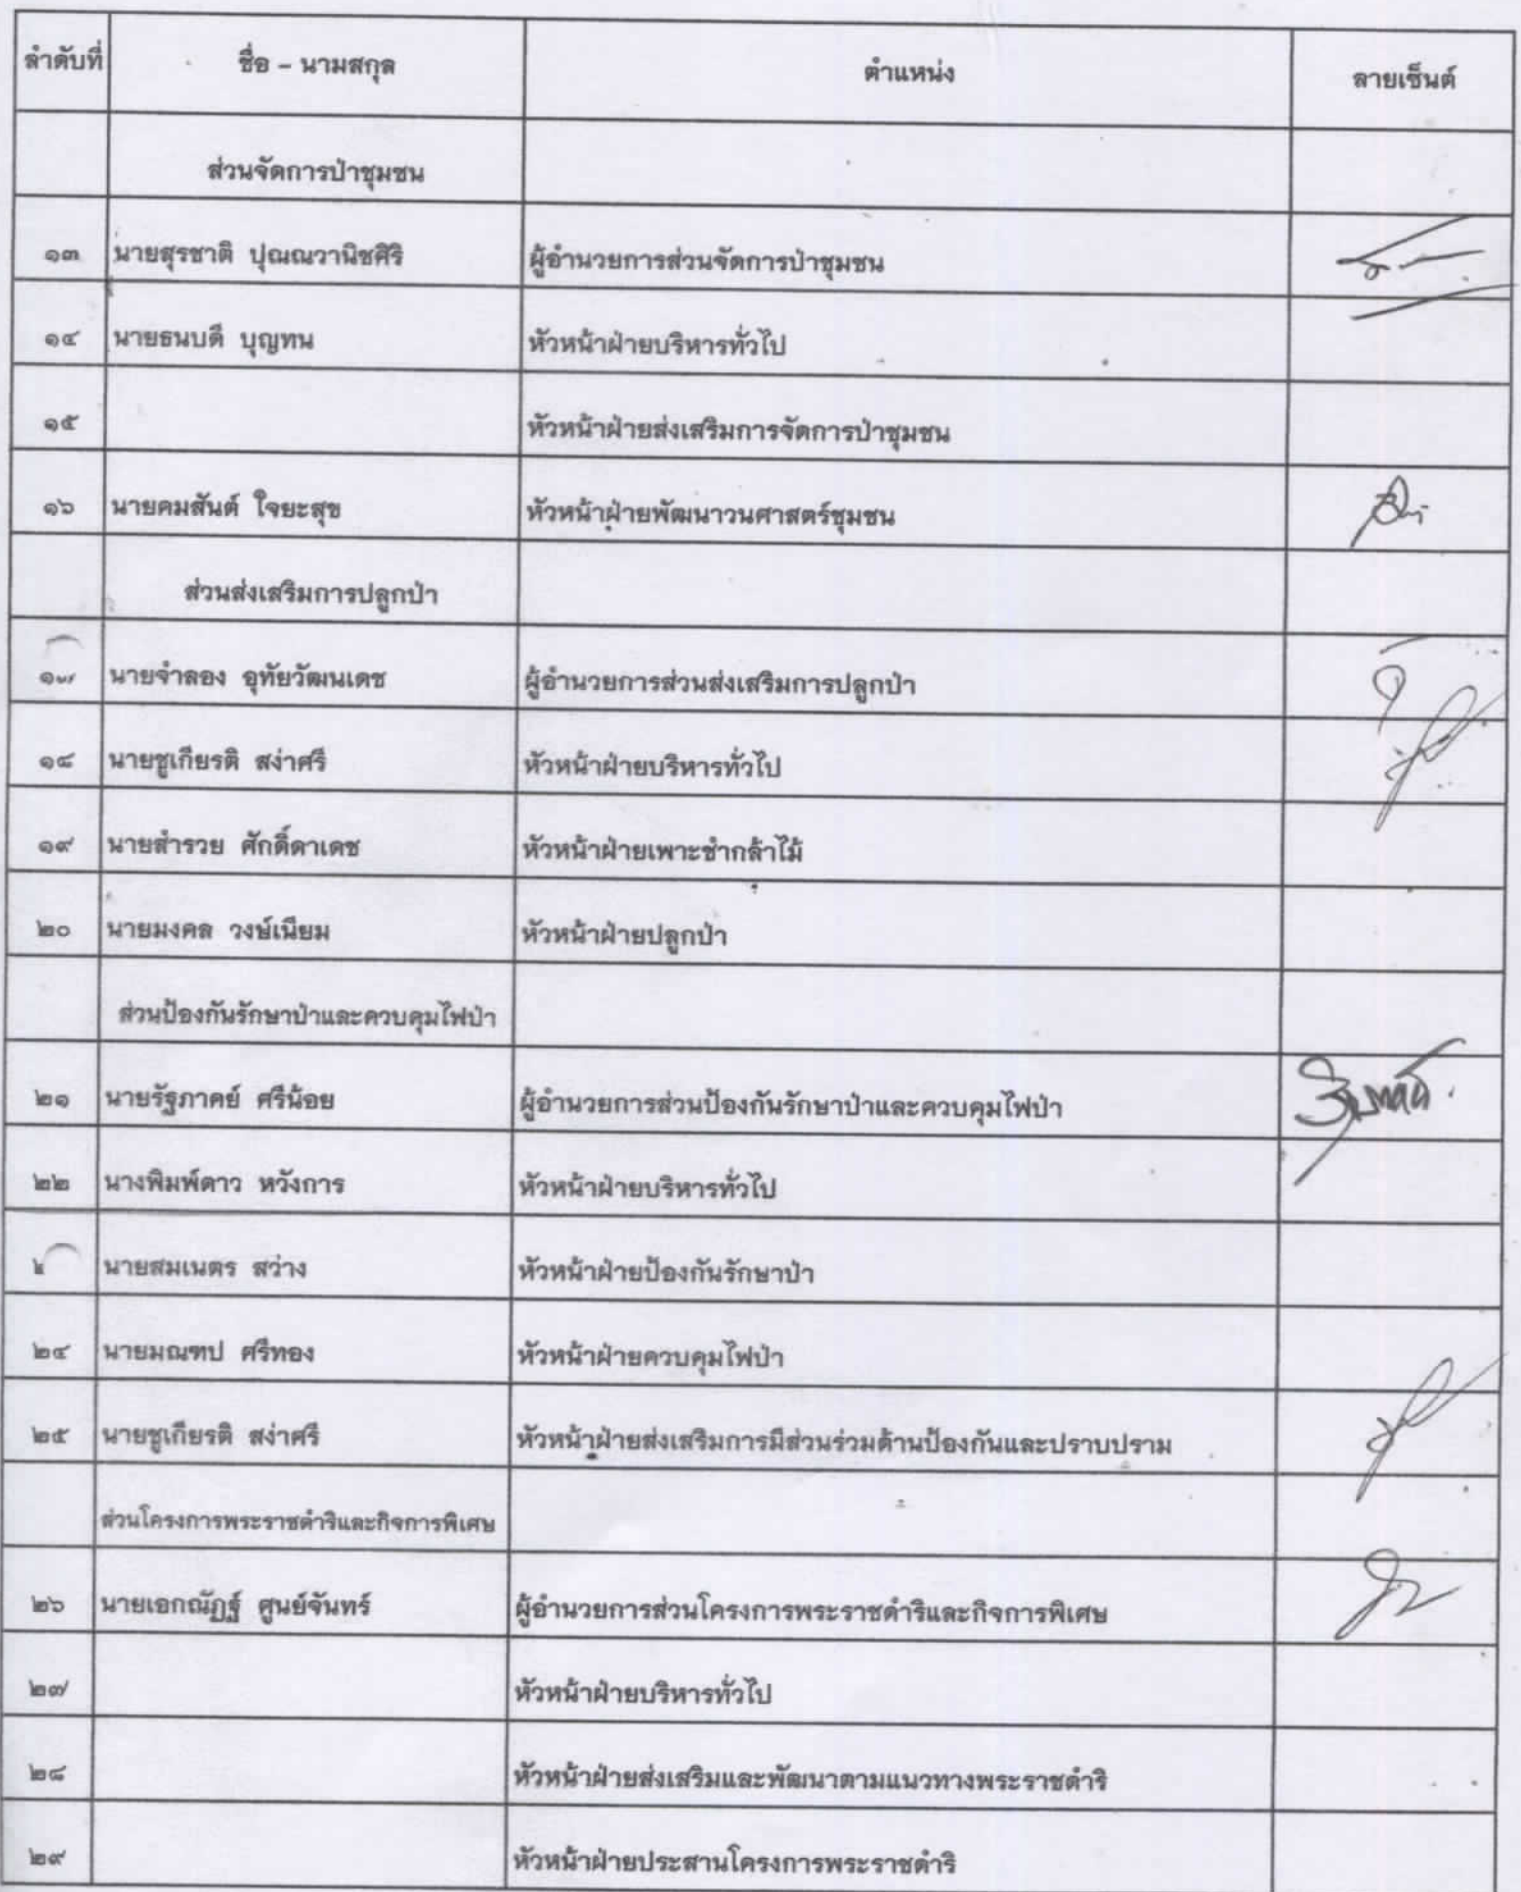 ลำดับที่ ชื่อ – นามสกุล ตำแหน่ง ลายเซ็นต์
ส่วนจัดการป่าชุมชน
๑๓ นายสุรชาติ ปุณณวานิชศิริ ผู้อำนวยการส่วนจัดการป่าชุมชน
๑๔ นายธนบดี บุญทน หัวหน้าฝ่ายบริหารทั่วไป
๑๕ หัวหน้าฝ่ายส่งเสริมการจัดการป่าชุมชน
๑๖ นายคมสันต์ ใจยะสุข หัวหน้าฝ่ายพัฒนาวนศาสตร์ชุมชน
ส่วนส่งเสริมการปลูกป่า
๑๗ นายจำลอง อุทัยวัฒนเดช ผู้อำนวยการส่วนส่งเสริมการปลูกป่า
๑๘ นายชูเกียรติ สง่าศรี หัวหน้าฝ่ายบริหารทั่วไป
๑๙ นายสำรวย ศักดิ์ดาเดช หัวหน้าฝ่ายเพาะชำกล้าไม้
๒๐ นายมงคล วงษ์เนียม หัวหน้าฝ่ายปลูกป่า
ส่วนป้องกันรักษาป่าและควบคุมไฟป่า
๒๑ นายรัฐภาคย์ ศรีน้อย ผู้อำนวยการส่วนป้องกันรักษาป่าและควบคุมไฟป่า
๒๒ นางพิมพ์ดาว หวังการ หัวหน้าฝ่ายบริหารทั่วไป
นายสมเนตร สว่าง หัวหน้าฝ่ายป้องกันรักษาป่า
๒๔ นายมณฑป ศรีทอง หัวหน้าฝ่ายควบคุมไฟป่า
๒๕ นายชูเกียรติ สง่าศรี หัวหน้าฝ่ายส่งเสริมการมีส่วนร่วมด้านป้องกันและปราบปราม
ส่วนโครงการพระราชดำริและกิจการพิเศษ
๒๖ นายเอกณัฏฐ์ ศูนย์จันทร์ ผู้อำนวยการส่วนโครงการพระราชดำริและกิจการพิเศษ
๒๗ หัวหน้าฝ่ายบริหารทั่วไป
๒๘ หัวหน้าฝ่ายส่งเสริมและพัฒนาตามแนวทางพระราชดำริ
๒๙ หัวหน้าฝ่ายประสานโครงการพระราชดำริ